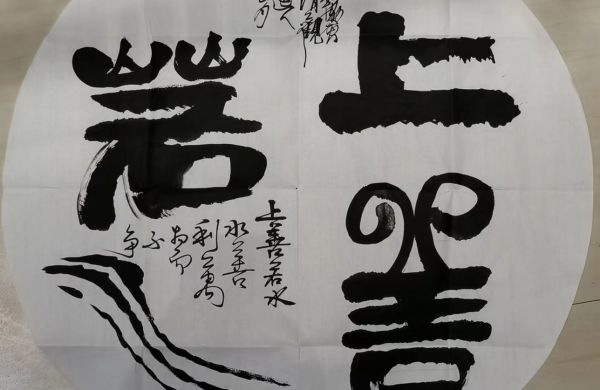 上善
若水
上善若水
水善
利萬
物而
不
争